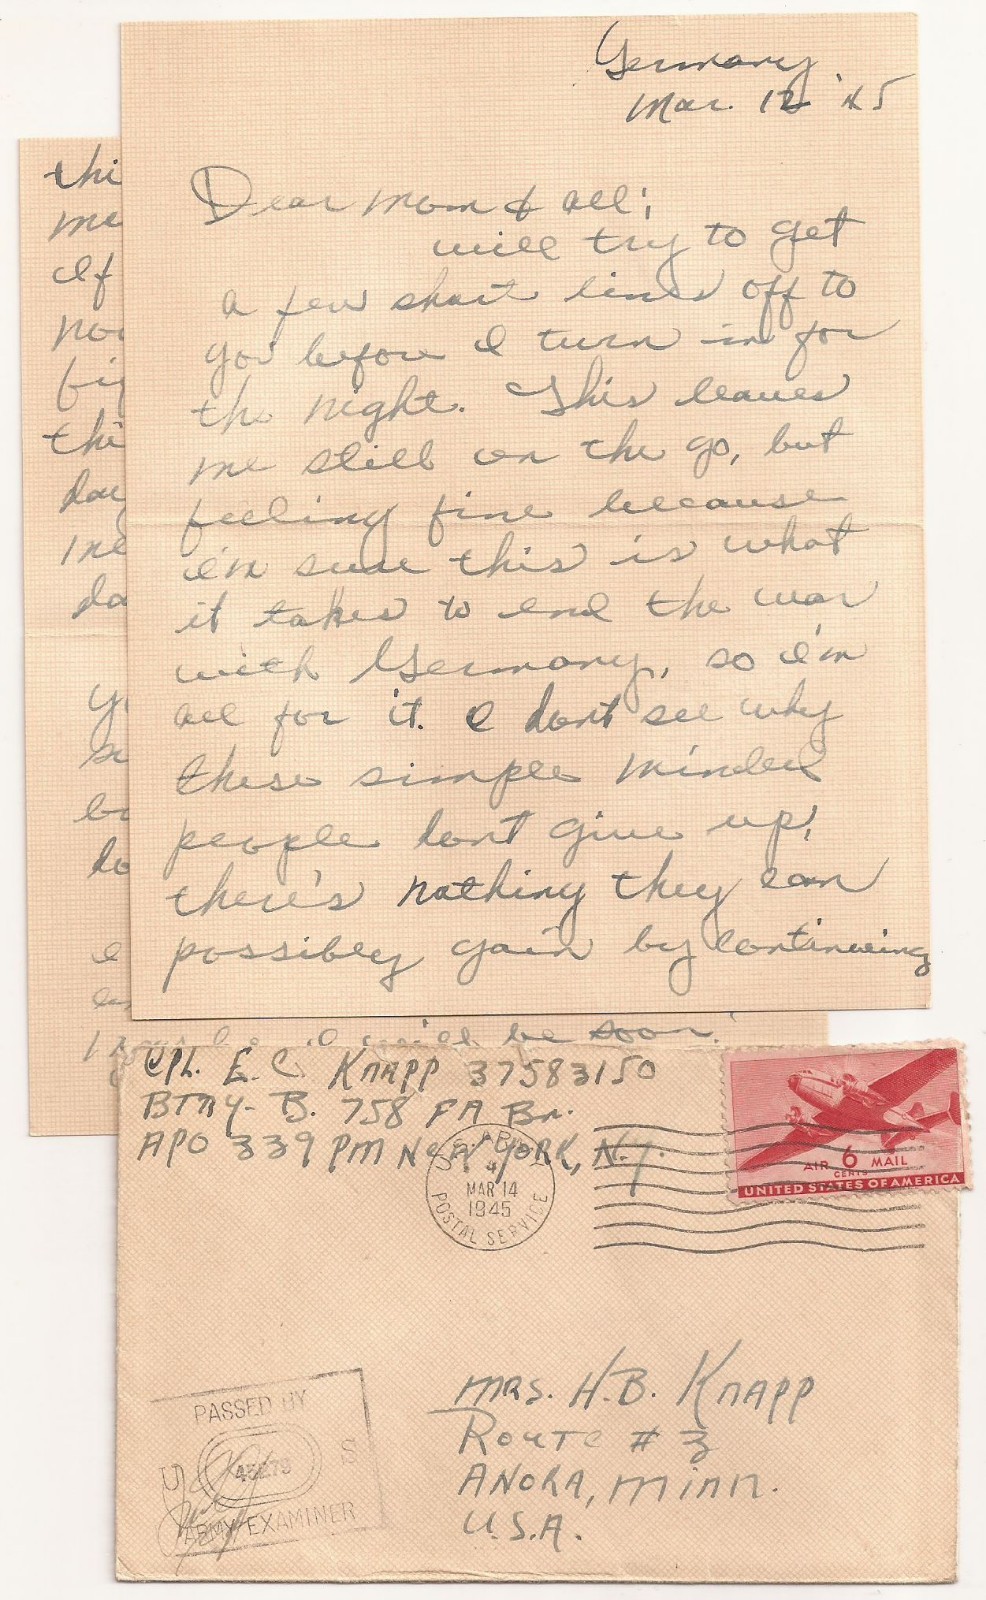 Germany
Mar. 12 '45
Dear Mom & all;
will try to get
a few short lines off to
you before I turn in for
the night. This leaves
me still on the go, but
feeling fine because
I'm sure this is what
it takes to end the war
with Germany, so I'm
all for it. I dont see why
these simple minded
people dont give up,
there's nothing they can
possibley gain by continueing
thi
me
If
no
fig
thi
day
ine
da
yo
su
bu
do
will be soon.
CPL. E. C. KNAPP 37583150
BTRY- B. 758 FA Bn.
APO 339 PM NEW YORK, N.Y.
U.S. ARMY
MAR 14
1945
POSTAL SERVICE
AIR 6 MAIL
CENTS
UNITED STATES OF AMERICA
PASSED BY
U S
45279
ARMY EXAMINER
MRS. H.B. KNAPP
ROUTE # 3
ANOKA, MINN.
U.S.A.